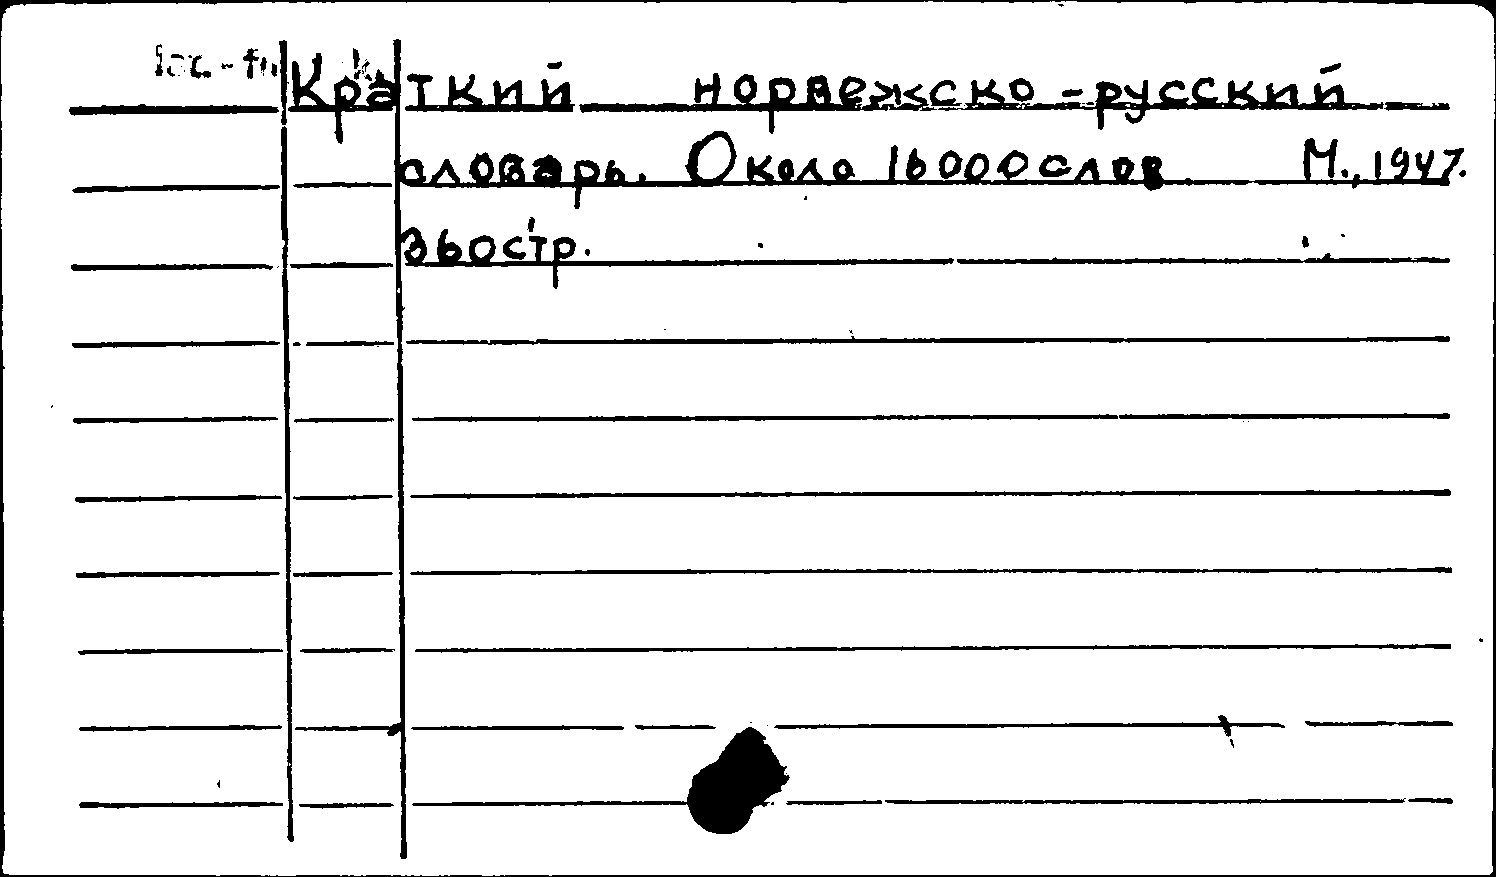 Краткий норвежско-русский
словарь. Около 16000 слов М., 1947.
360 стр.